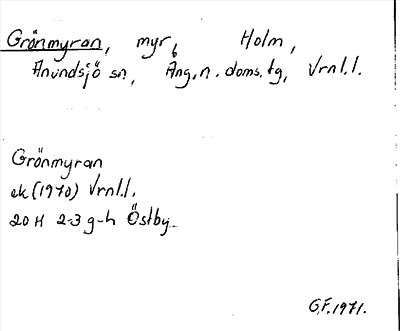 Grönmyran, myr, Holm,
Anundsjö sn, Ång.n. doms.tg, Vrnl.l.
Grönmyran
ek (1970) Vrnl.l.
20 H 2-3 g-h Östby
G.F. 1971.